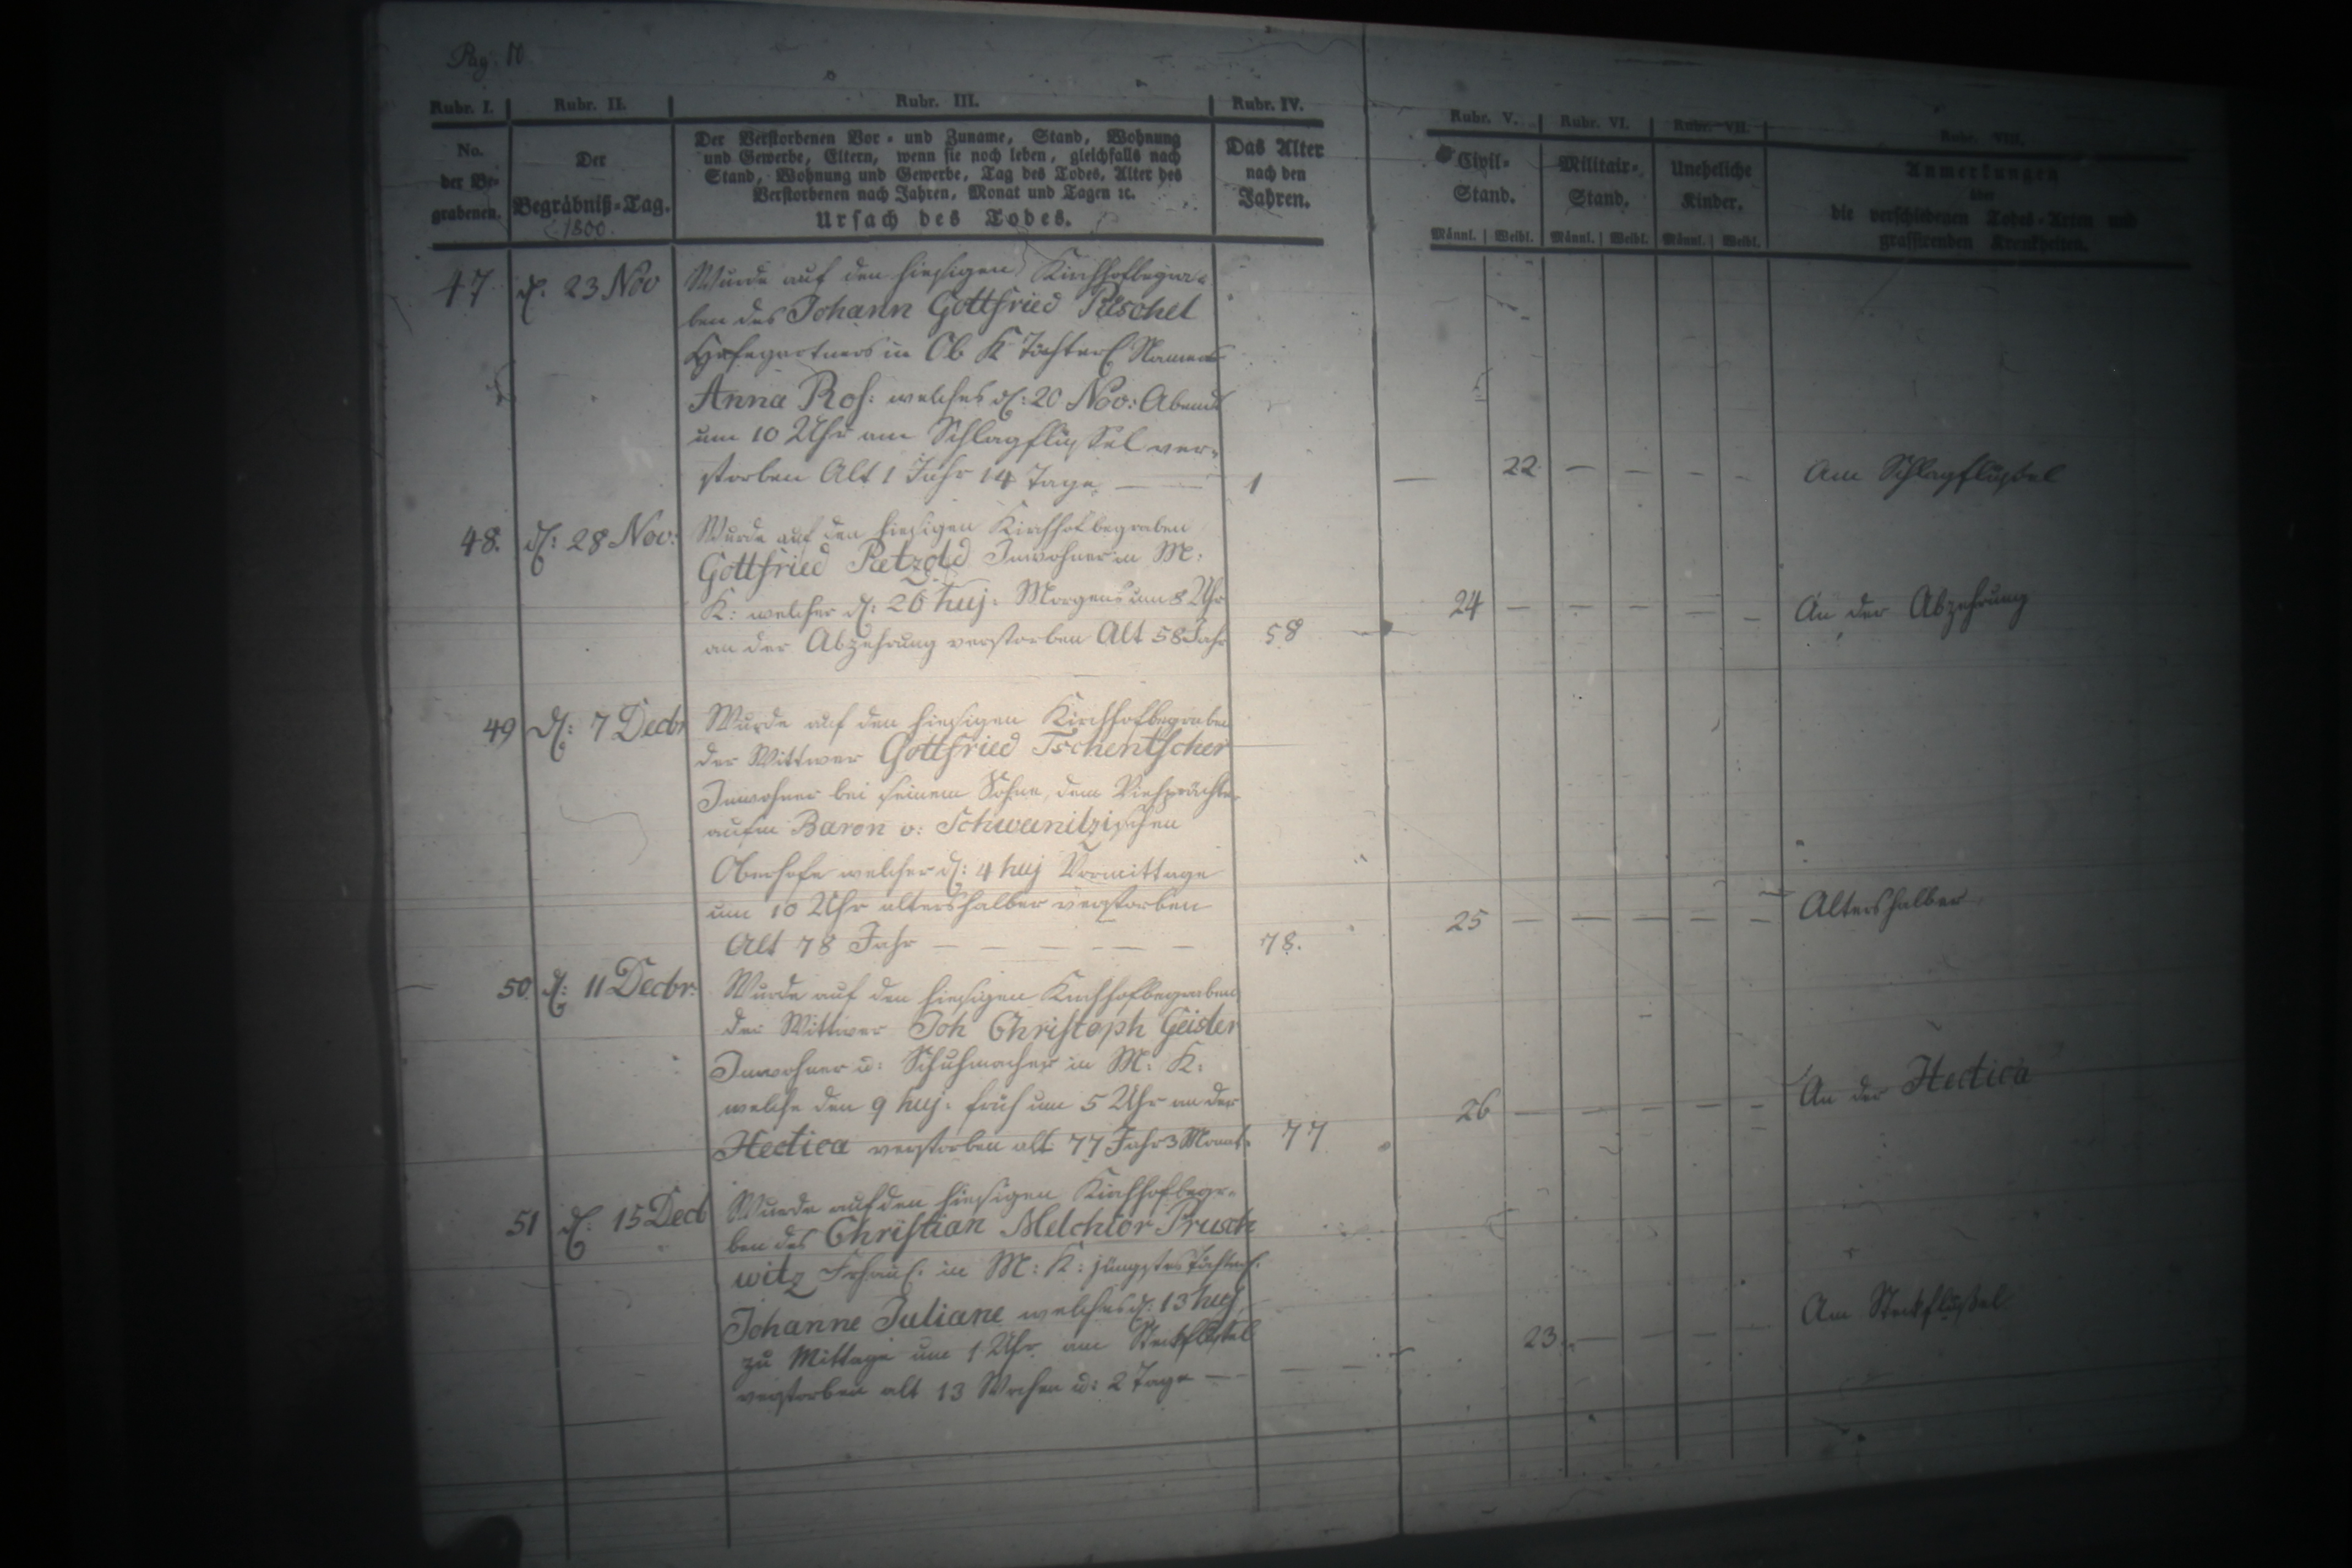 Pag. 10
Rubr. I. Rubr. II. Rubr. III. Rubr. IV. Rubr. V. Rubr. VI. Rubr. VII. Rubr. VIII.
No. der Begrabenen.
Der Begräbniß=Tag.
1800.
Der Verstorbenen Vor= und Zuname, Stand, Wohnung
und Gewerbe, Eltern, wenn sie noch leben, gleichfalls nach
Stand, Wohnung und Gewerbe, Tag des Todes, Alter des
Verstorbenen nach Jahren, Monat und Tagen ꝛc.
Ursach des Todes.
Das Alter
nach den
Jahren.
Civil=
Stand.
Militair=
Stand.
Uneheliche
Kinder.
Männl. Weibl. Männl. Weibl. Männl. Weibl.
Anmerkungen
über
die verschiedenen Todes=Arten und
grassirenden Krankheiten.
47 d. 23 Nov Wurde auf den hiesigen Kirchhof begra=
ben des Johann Gottfried Püschel
Hofegartners in Ob K Töchterl. Namens
Anna Ros: welches d: 20 Nov: Abends
um 10 Uhr am Schlagflüssel ver=
storben Alt 1 Jahr 14 Tage — 1 — 22 — — — — Am Schlagflüssel
48. d: 28 Nov: Wurde auf den hiesigen Kirchhof begraben
Gottfried Petzold Inwohner in M:
K: welcher d: 26 huj: Morgens um 8 Uhr
an der Abzehrung verstorben Alt 58 Jahr 58 24 — — — — — An der Abzehrung
49 d: 7 Decbr Wurde auf den hiesigen Kirchhof begraben
der Wittwer Gottfried Tschentscher
Inwohner bei seinem Sohne, dem Viehpächter
aufm Baron v: Schweinitzischen
Oberhofe welcher d: 4 huj Vormittage
um 10 Uhr altershalber verstorben
Alt 78 Jahr — — — — — 78. 25 — — — — — Altershalber
50 d: 11 Decbr: Wurde auf den hiesigen Kirchhof begraben
der Wittwer Joh Christoph Geisler
Inwohner u: Schuhmacher in M: K:
welche den 9 huj: früh um 5 Uhr an der
Hectica verstorben alt 77 Jahr 3 Monat. 77 26 — — — — — An der Hectica
51 d: 15 Dec Wurde auf den hiesigen Kirchhof begr=
ben des Christian Melchior Prusch
witz Frhäusl. in M: K: jüngstes Töchterl.
Johanne Juliane welches d: 13 huj
zu Mittage um 1 Uhr am Steckflüssel
verstorben alt 13 Wochen u: 2 Tage — — — 23. — — — — Am Steckflüssel